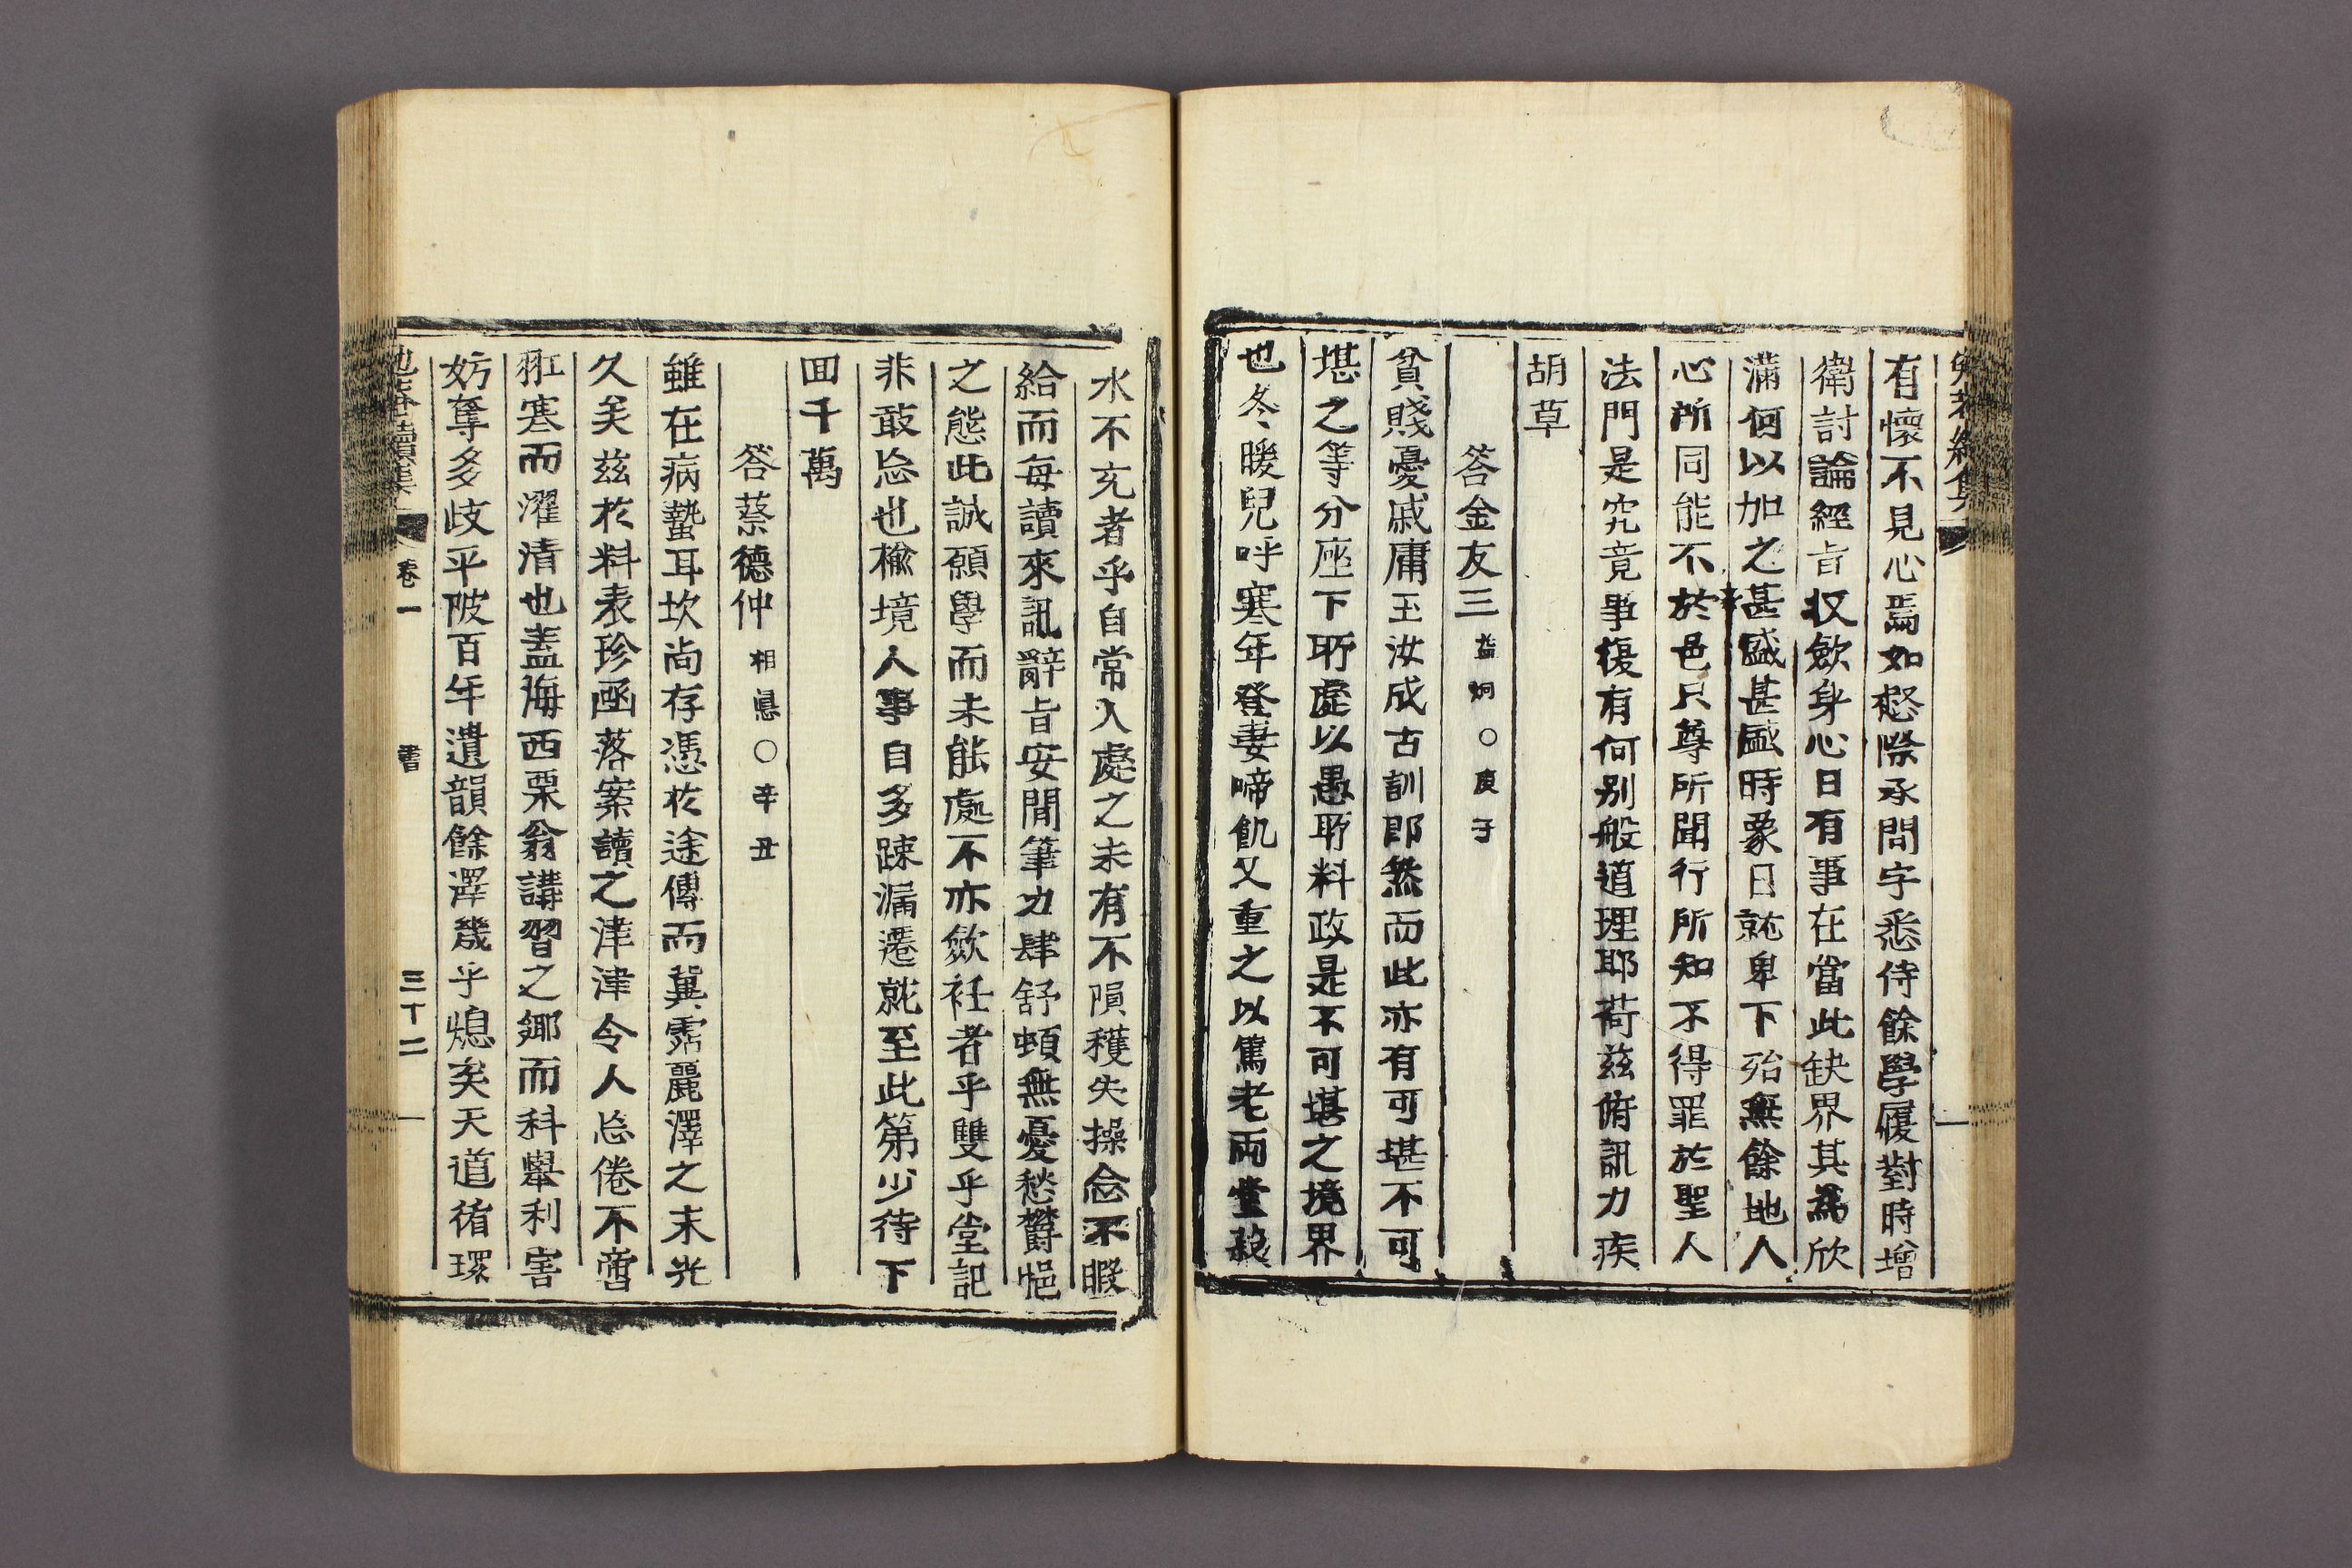 有懷不見心焉如惄際承問字悉侍餘學履對時增
衛討論經旨収歛身心日有事在當此缺界其爲欣
滿何以加之甚盛甚盛時象日就卑下殆無餘地人
心所同能不於邑只尊所聞行所知不得罪於聖人
法門是究竟事復有何别般道理耶荷玆俯訊力疾
胡草
答金友三 炯○庚子
貧賤憂戚庸玉汝成古訓即然而此亦有可堪不可
堪之等分座下所處以愚所料政是不可堪之境界
也冬暖兒呼寒年登妻啼飢又重之以篤老兩堂菽
水不充者乎自常入處之未有不隕穫失操念不暇
給而每讀來訊辭旨安閒筆力肆舒頓無憂愁欝悒
之態此誠願學而未能處不亦歛衽者乎雙乎堂記
非敢忘也楡境人事自多踈漏遷就至此第少待下
回千萬
答蔡德仲 相 ○辛丑
雖在病蟄耳坎尚存憑於途傳而冀霑麗澤之末光
久矣玆於料表珍函落案讀之津津令人忘倦不啻
寒而濯清也盖海西栗翁講習之鄊而科舉利害
妨奪多歧平陂百年遺韻餘澤幾乎熄矣天道循環
續集 卷一 書 三十二